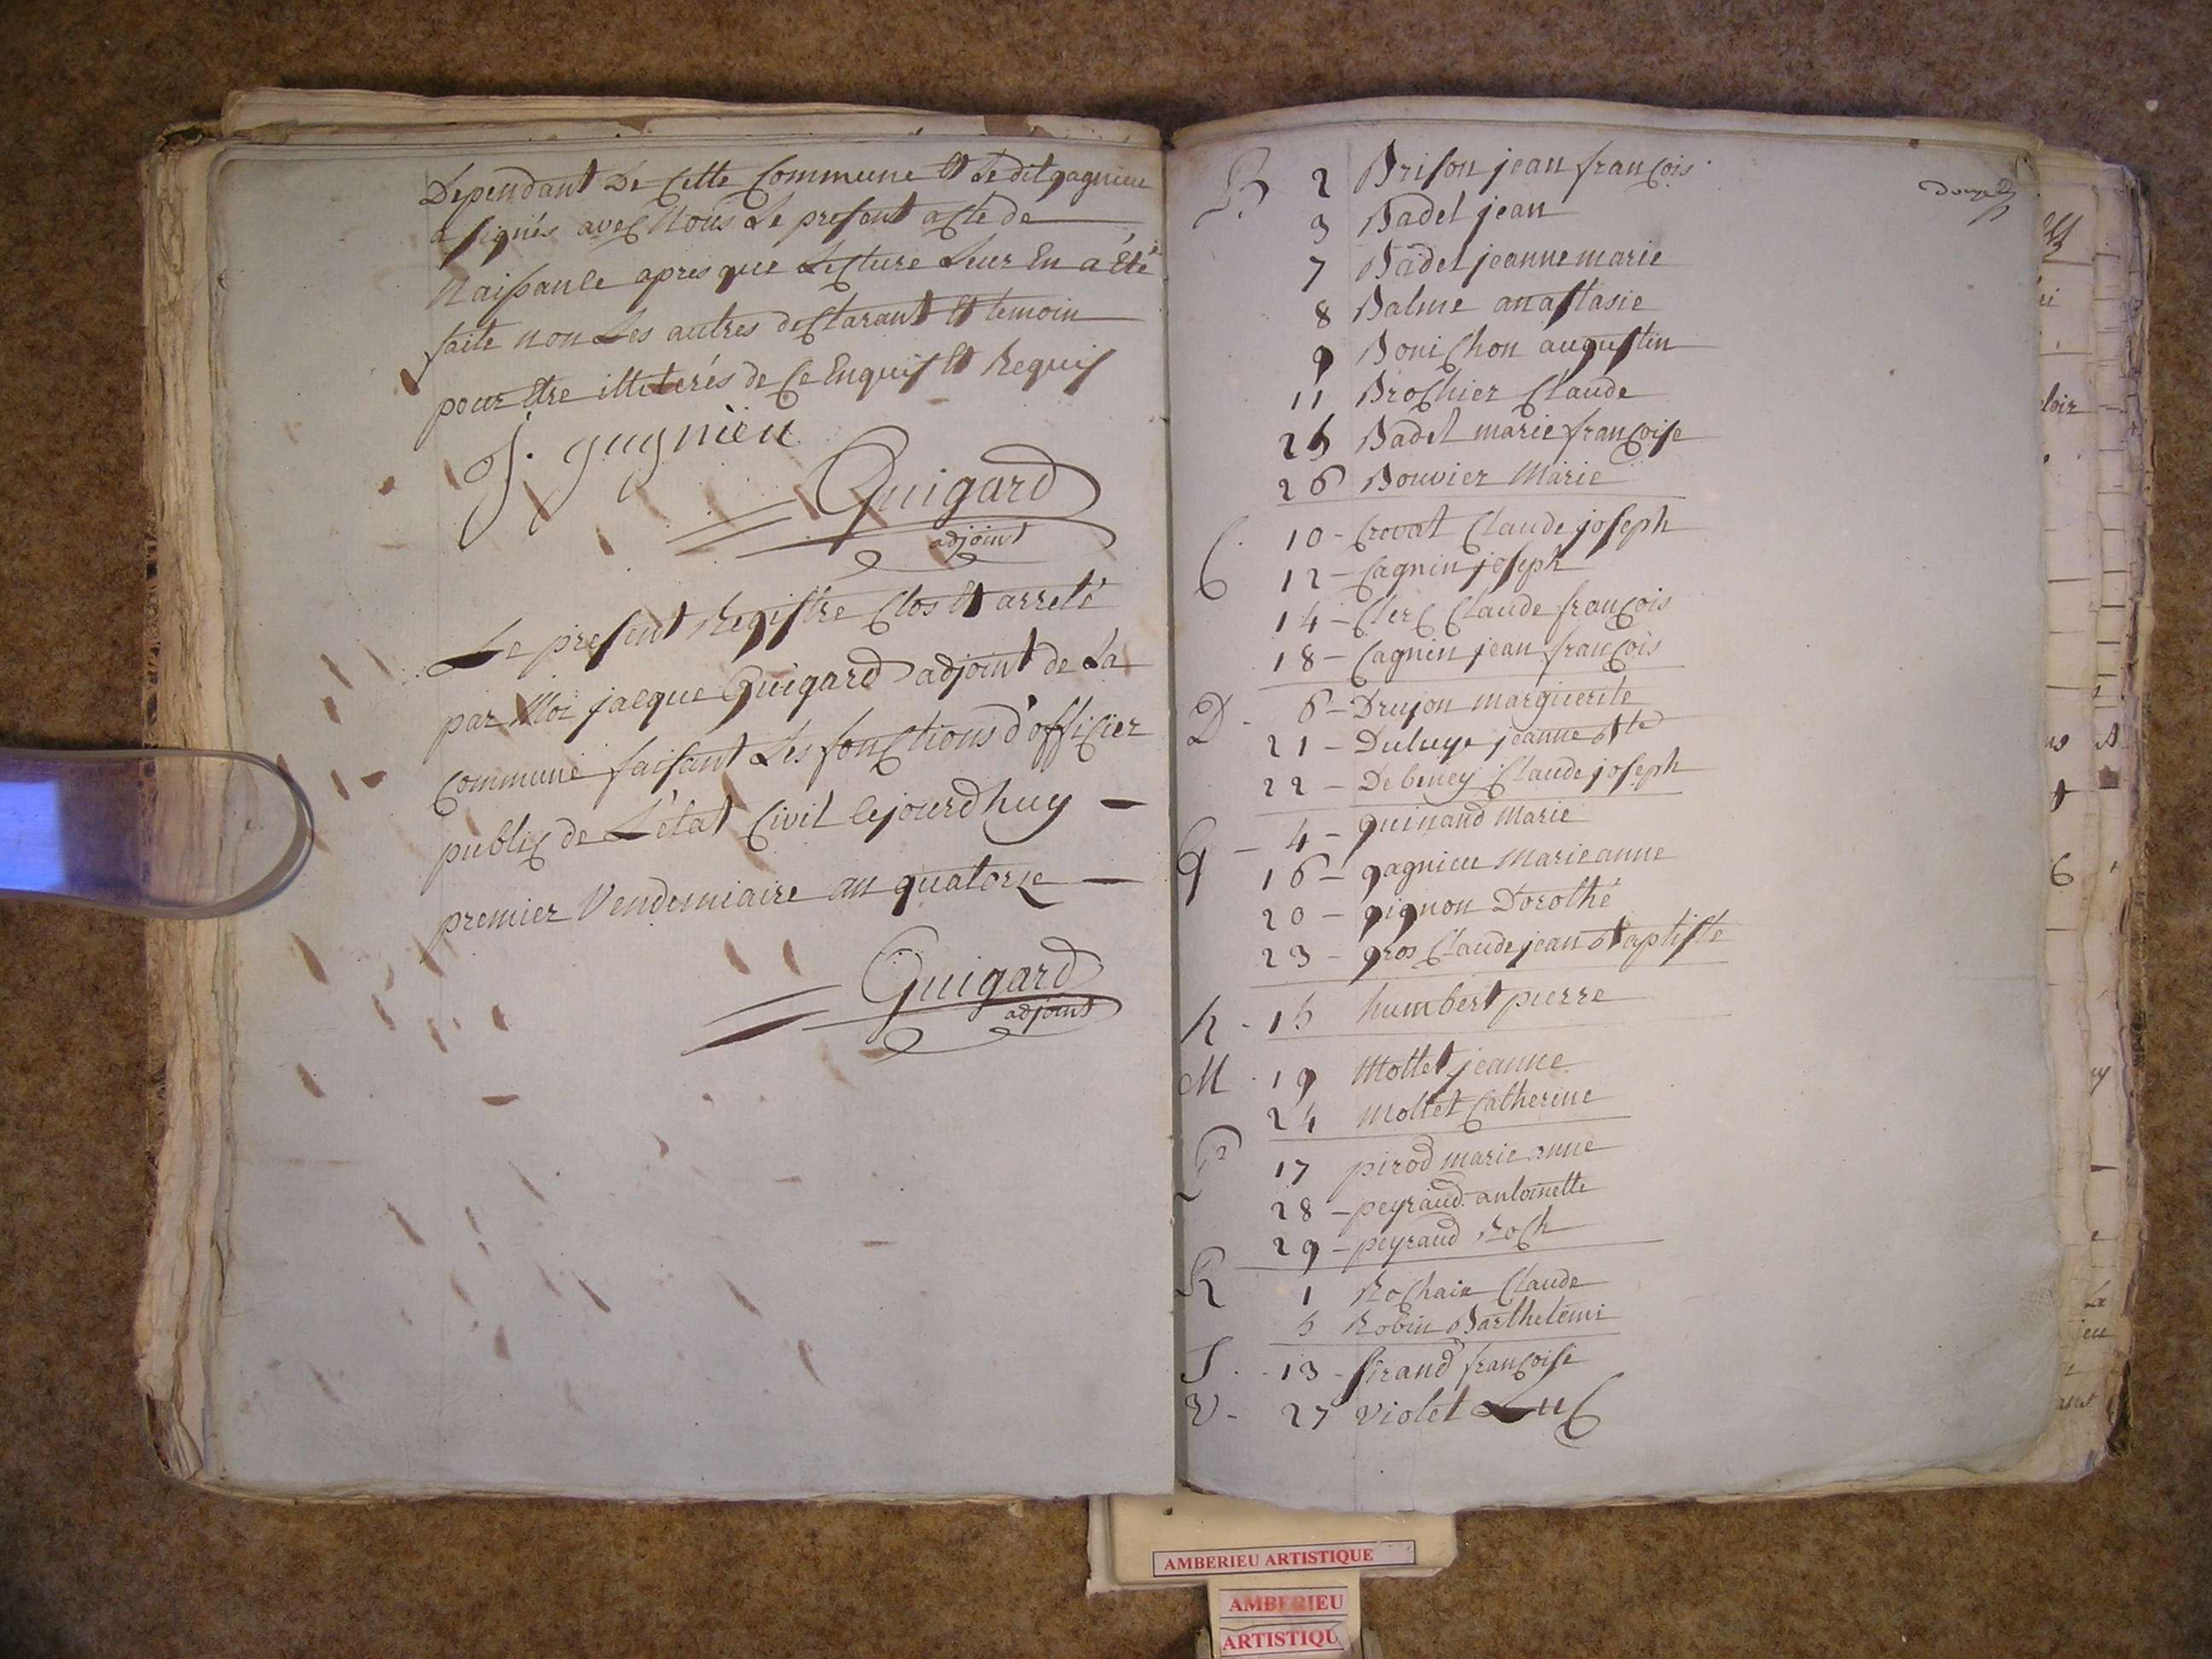 Dependant De Cette Commune Et Ledit gagnieu
a signés avec Nous Le present acte de
Naissance apres que Lecture Leur En a Eté
faite non Les autres declarant Et temoin
pour Etre illeterés de Ce Enquis Et Requis
J. gagnieu
Guigard
adjoint
Le present Registre Clos Et arreté
par Moi jacque Guigard adjoint de La
commune faisant Les fonctions d'officier
public de L'état Civil Cejourdhuy
premier Vendemiaire an quatorze
Guigard
adjoint
douze
B 2 Brison jean françois
3 Badel jean
7 Badel jeanne marie
8 Balme anastasie
9 Bonichon augustin
11 Brochier Claude
25 Badel marie françoise
26 Bouvier Marie
C. 10 - Crovat Claude joseph
12 - Cagnin joseph
14 - Clerc Claude françois
18 - Cagnin jean françois
D - 6 - Drujon marguerite
21 - jeanne Bte
22 - Debeney Claude joseph
G - 4 - guinand Marie
16 - gagnieu Marieanne
20 - gignon Dorothé
23 - gros Claude jean Baptiste
h - 15 humbert pierre
M - 19 Mollet jeanne
24 mollet Catherine
P 17 pirod marie anne
28 - peyraud antoinette
29 - peyraud Roch
R 1 Rochaix Claude
5 Robin Barthelemi
S. - 13 - Sirand françoise
V - 27 Violet Luc
AMBERIEU ARTISTIQUE
AMBERIEU
ARTISTIQU